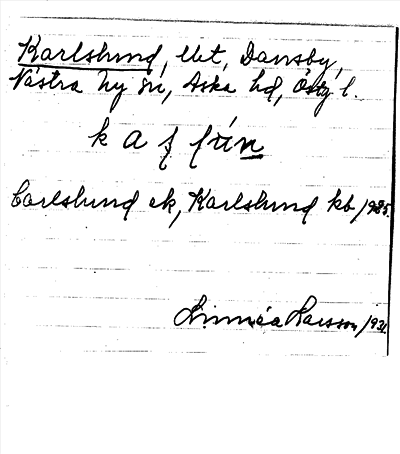 Karlslund, utet, Dansby,
Västra Ny sn, Aska hd, Östg l.
Carlslund ek, Karlslund kb /1925.
Linnéa Larsson /1931.